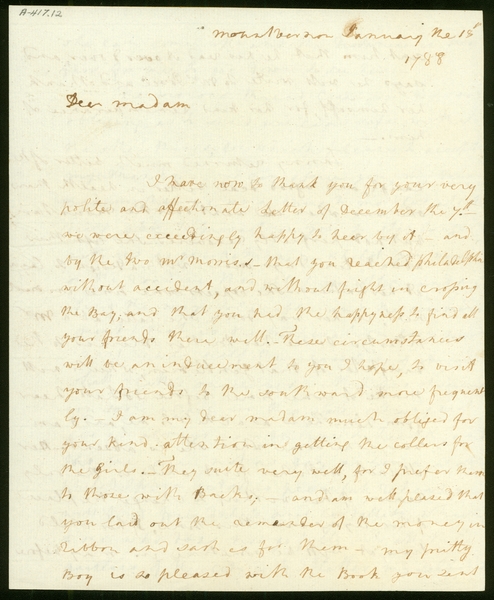 A-417.12
mount vernon January the 15th
1788
Dear madam
I have now to thank you for your very
polite and affectionate letter of December the 7th
we were exceedingly happy to heer by it – and
by the two mr morriss – that you reached philadelphia
without accident, and without fright in crossing
the Bay, and that you had the happyness to find all
your friends there well. – These circumstances
will be an inducement to you I hope, to visit
your friends to the southward more frequent
ly. – I am my dear madam much obliged for
your kind attention in getting the collars for
the Girls. – They suite very well, for I prefer them
to those with Backs, – and am well plased that
you laid out the remender of the money in
ribbon and sash es for them – my pritty
Boy is so pleased with the Book you sent